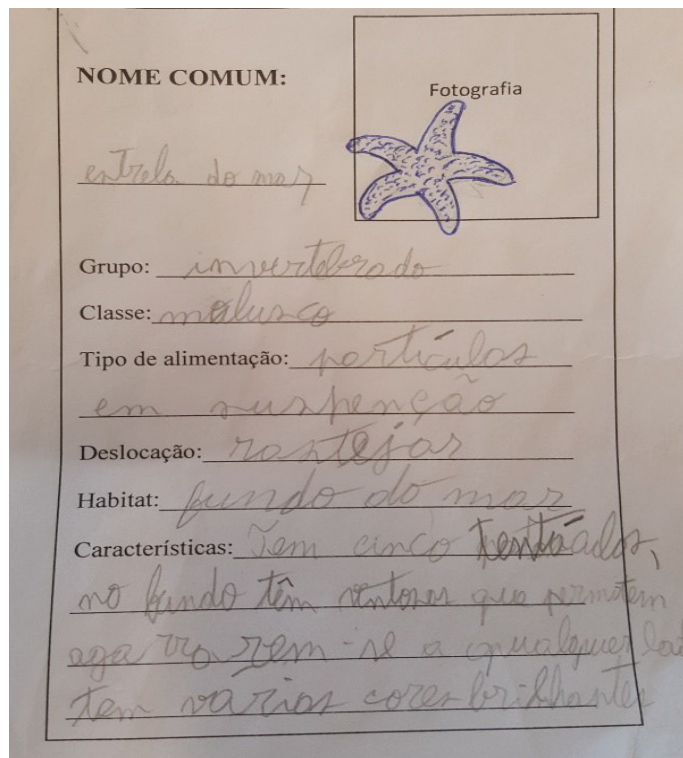 NOME COMUM:
Fotografia
entrela do mar
Grupo: invertebrado
Classe: malusco
Tipo de alimentação: partículas
em suspenção
Deslocação: rastejar
Habitat: fundo do mar
Características: Tem cinco
no fundo têm ventosas que permitem
agarrarem-se a qualquer
tem várias cores brilhantes